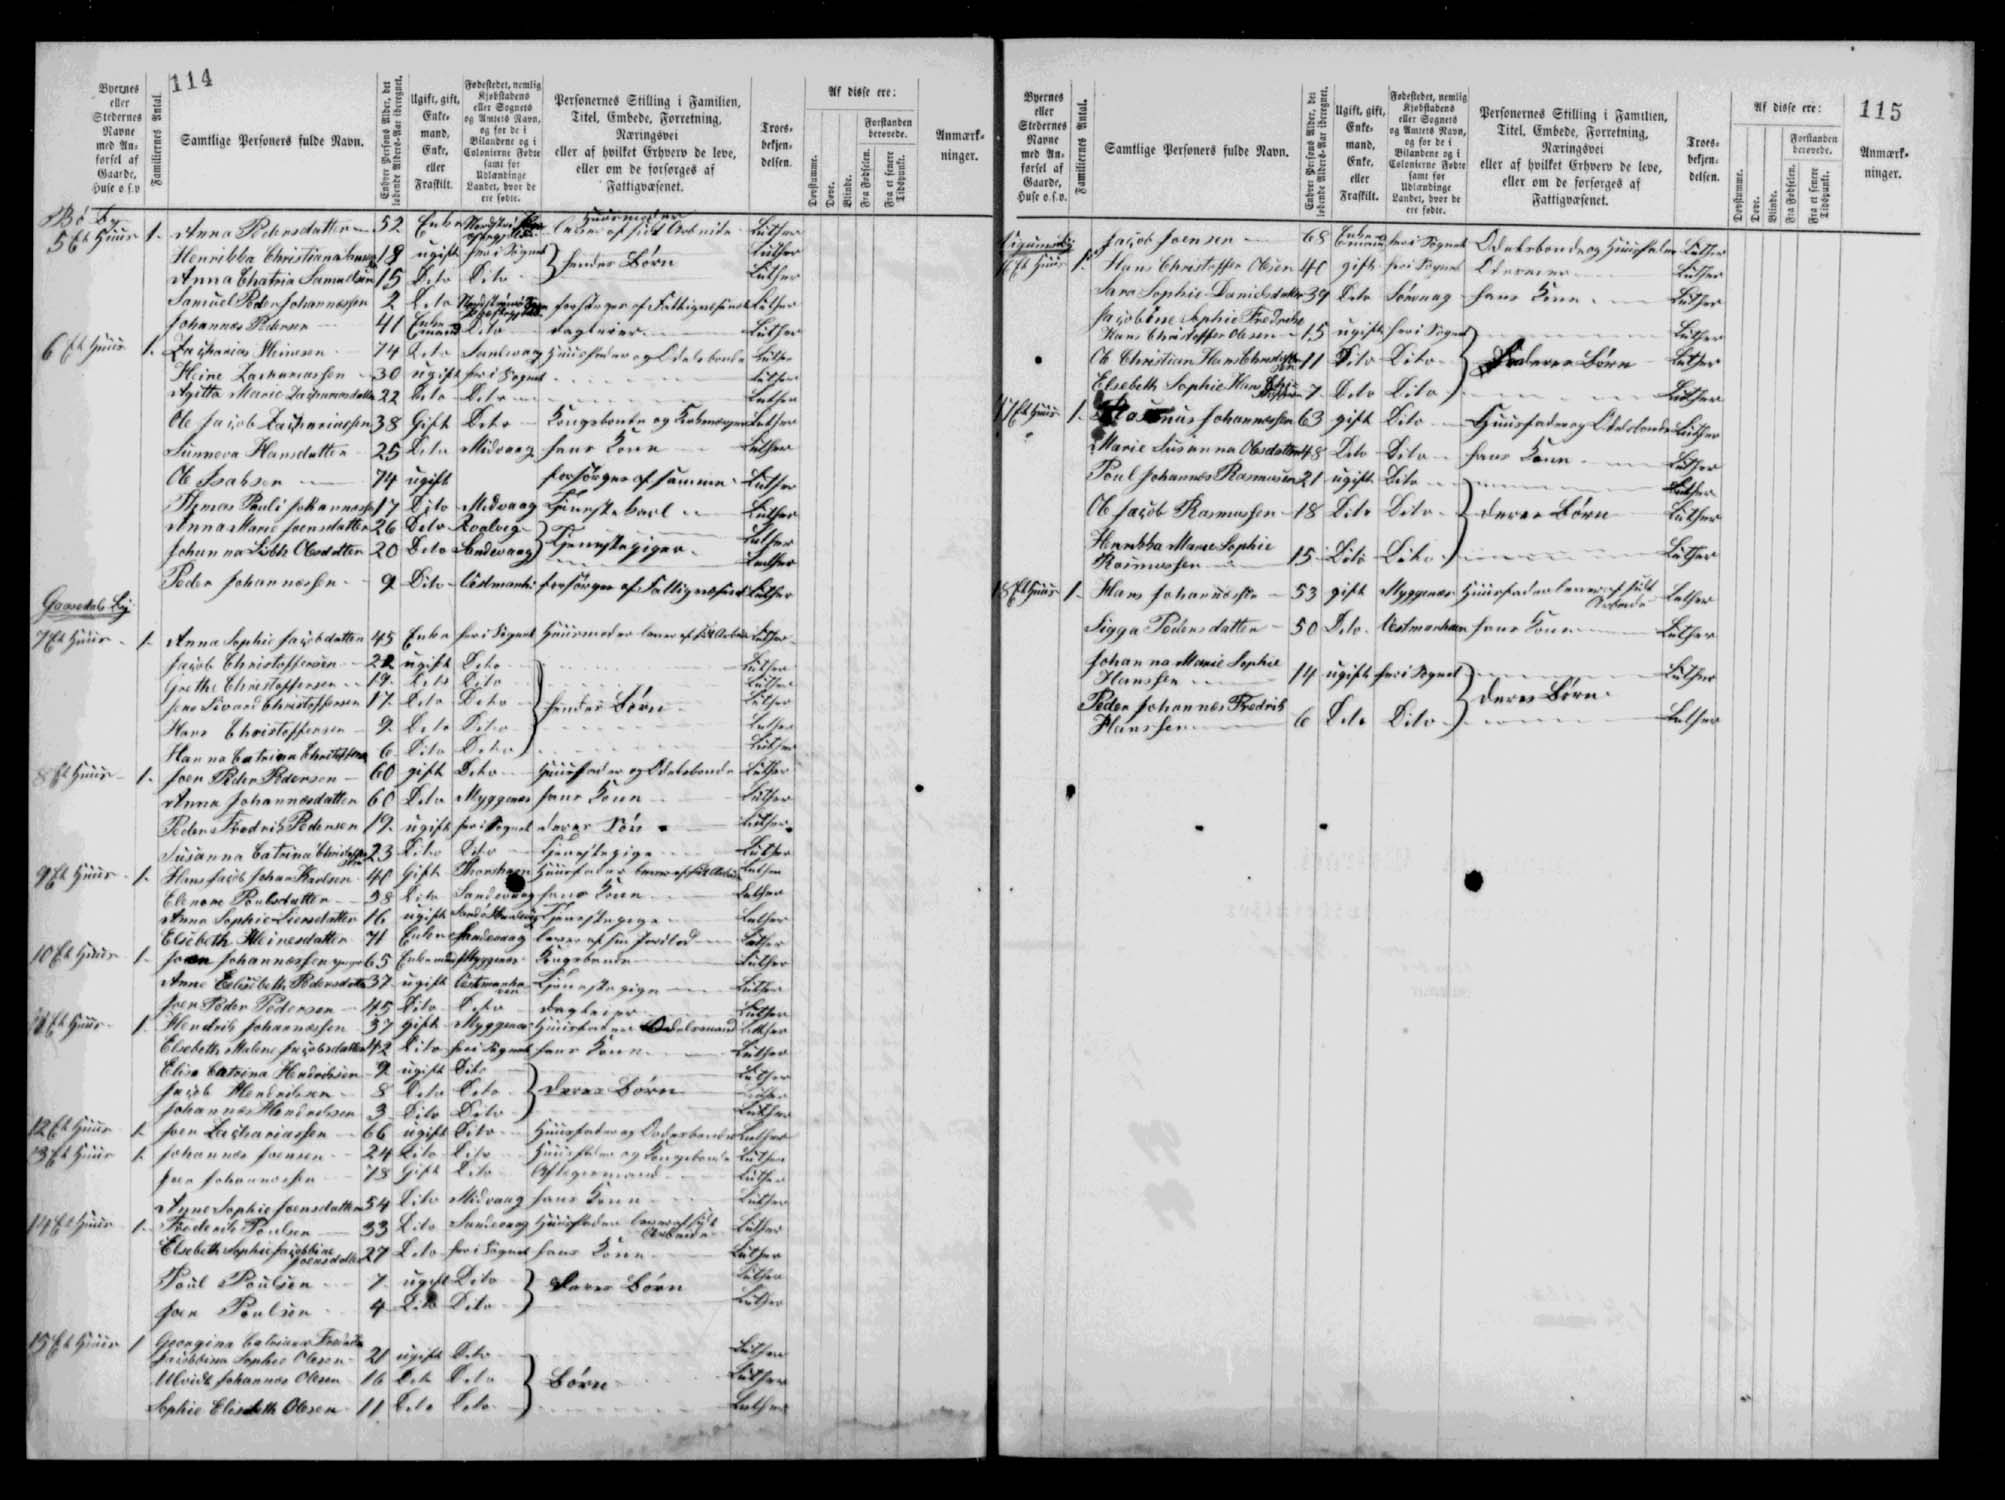 114
Byernes eller Stedernes Navne med Anførsel af Gaarde, Huse o.s.v.
Familiernes Antal.
Samtlige Personers fulde Navn.
Enhver Persons Alder, det løbende Alders-Aar iberegnet.
Ugift, gift, Enkemand, Enke, eller Fraskilt.
Fødestedet, nemlig Kjøbstadens eller Sognets og Amtets Navn, og for de i Bilandene og i Colonierne Fødte samt for Udlændinge Landet, hvor de ere fødte.
Personernes Stilling i Familien, Titel, Embede, Forretning, Næringsvei eller af hvilket Erhverv de leve, eller om de forsørges af Fattigvæsenet.
Troesbekjendelsen.
Af disse ere:
Døvstumme.
Døve.
Blinde.
Forstanden berøvede.
Fra Fødselen.
Fra et senere Tidspunkt.
Anmærkninger.
Bö By
5 Et Huus 1. Anna Pedersdatter 52 Enke Huusmoder lever af sit Arbeide Luther
Henrikka Christiana 18 ugift her i Sognet Luther
Anna Chatrina Samuelsen 15 Dito Dito hendes Börn Luther
Samuel Peder Johannessen 2 Dito forsörges af Luther
Johannes Pedersen 41 Enkemand Dito dagleier Luther
6 Et Huus 1. Zacharias Heinesen 74 Dito Sandevaag Huusfader og Odelsbonde Luther
Heine Zachariassen 30 ugift her i Sognet Luther
Agitta Marie Zachariasdatter 22 Dito Dito Luther
Ole Jacob Zachariassen 38 Gift Dito Kongsbonde og Luther
Sunneva Hansdatter 25 Dito Midvaag hans Kone Luther
Ole Isaksen 74 ugift forsörges af samme Luther
Thomas Pauli Johannessen 17 Dito Midvaag Tjenestekarl Luther
Anna Marie Joensdatter 26 Dito Luther
Johanna Olesdatter 20 Dito Sandevaag Tjenestepiger Luther
Peder Johannessen 9 Dito forsörges af Luther
Gaasedals By
7 Et Huus 1. Anna Sophie Jacobsdatter 45 Enke her i Sognet Huusmoder lever af sit Arbeide Luther
Jacob Christoffersen 22 ugift Dito Luther
Grethe Christoffersen 19 Dito Dito Luther
Jens Sivard Christoffersen 17 Dito Dito hendes Börn Luther
Hans Christoffersen 9 Dito Dito Luther
Hanna Catrina Christoffersen 6 Dito Dito Luther
8 Et Huus 1. Joen Peder Pedersen 60 gift Dito Huusfader og Odelsbonde Luther
Anna Johannesdatter 60 Dito Myggenæs hans Kone Luther
Peder Fredrik Pedersen 19 ugift her i Sognet deres Sön Luther
Susanna Catrina 23 Dito Dito Tjenestepige Luther
9 Et Huus 1. Hans Jacob Johan 40 Gift Thorshavn Huusfader lever af sit Arbeide Luther
Elenore Poulsdatter 38 Dito Sandevaag hans Kone Luther
Anna Sophie 16 ugift Tjenestepige Luther
Elsebeth Heinesdatter 71 Enke Sandevaag lever af sin Jordlod Luther
10 Et Huus 1. Joen Johannessen 65 Enkemand Myggenæs Kongsbonde Luther
Anne Elisebeth Pedersdatter 37 ugift Tjenestepige Luther
Joen Peder Pedersen 45 Dito Dito dagleier Luther
11 Et Huus 1. Hendrik Johannessen 37 gift Myggenæs Huusfader Odelsmand Luther
Elsebeth Malene Jacobsdatter 42 Dito her i Sognet hans Kone Luther
Elise Catrina Hendriksen 9 ugift Dito Luther
Jacob Hendriksen 8 Dito Dito deres Börn Luther
Johannes Hendriksen 3 Dito Dito Luther
12 Et Huus 1. Joen Zachariassen 66 ugift Dito Huusfader og Luther
13 Et Huus 1. Johannes Joensen 24 Dito Dito Huusfader og Kongsbonde Luther
Joen Johannessen 78 Gift Dito Luther
Anne Sophie Joensdatter 54 Dito Midvaag hans Kone Luther
14 Et Huus 1. Frederik Poulsen 33 Dito Sandevaag Huusfader lever af sit Arbeide Luther
Elsebeth Sophie Jacobbine Joensdatter 27 Dito her i Sognet hans Kone Luther
Poul Poulsen 7 ugift Dito deres Börn Luther
Joen Poulsen 4 Dito Dito Luther
15 Et Huus 1 Georgina Catrina
Jacobbina Sophie Olesen 21 ugift Dito Luther
Johannes Olesen 16 Dito Dito Börn Luther
Sophie Elisabeth Olesen 11 Dito Dito Luther
115
Byernes eller Stedernes Navne med Anførsel af Gaarde, Huse o.s.v.
Familiernes Antal.
Samtlige Personers fulde Navn.
Enhver Persons Alder, det løbende Alders-Aar iberegnet.
Ugift, gift, Enkemand, Enke, eller Fraskilt.
Fødestedet, nemlig Kjøbstadens eller Sognets og Amtets Navn, og for de i Bilandene og i Colonierne Fødte samt for Udlændinge Landet, hvor de ere fødte.
Personernes Stilling i Familien, Titel, Embede, Forretning, Næringsvei eller af hvilket Erhverv de leve, eller om de forsørges af Fattigvæsenet.
Troesbekjendelsen.
Af disse ere:
Døvstumme.
Døve.
Blinde.
Forstanden berøvede.
Fra Fødselen.
Fra et senere Tidspunkt.
Anmærkninger.
Jacob Joensen 68 Enkemand her i Sognet Odelsbonde og Huusfader Luther
16 Et Huus 1. Hans Christoffer Olesen 40 gift her i Sognet Luther
Sara Sophie Danielsdatter 39 Dito Sörvaag hans Kone Luther
Jacobine Sophie Fredrikke
Hans Christoffer Olesen 15 ugift her i Sognet Luther
Ole Christian Hans Christoffersen 11 Dito Dito deres Börn Luther
Elsebeth Sophie Hans 7 Dito Dito Luther
17 Et Huus 1. Rasmus Johannessen 63 gift Dito Huusfader og Odelsbonde Luther
Marie Susanna Olesdatter 48 Dito Dito hans Kone Luther
Poul Johannes Rasmussen 21 ugift Dito Luther
Ole Jacob Rasmussen 18 Dito Dito deres Börn Luther
Henrikka Marie Sophie
Rasmussen 15 Dito Dito Luther
18 Et Huus 1. Hans Johannessen 53 gift Myggenæs Huusfader lever af sit Arbeide Luther
Sigga Pedersdatter 50 Dito Vestmanhavn hans Kone Luther
Johanna Marie Sophie
Hanssen 14 ugift her i Sognet Luther
Peder Johannes Fredrik deres Börn
Hanssen 6 Dito Dito Luther